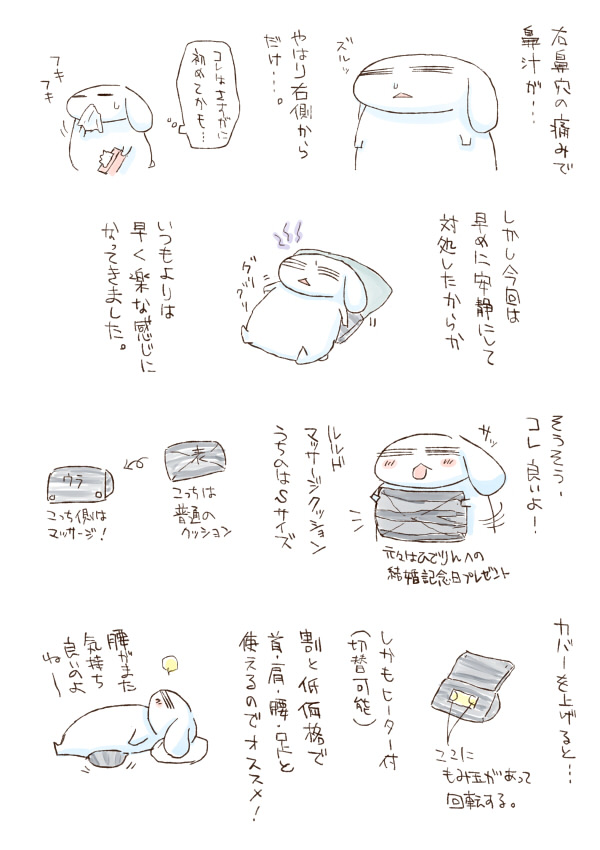 右鼻穴の痛みで
鼻汁が…
ズルッ
やはり右側から
だけ…。
コレはさすがに
初めてかも…
フキ
フキ
しかし今回は
早めに安静にして
対処したからか
グリ
グリ
いつもよりは
早く楽な感じに
なってきました。
そうそう、
コレ良いよー!
サッ
元々はひでりんへの
結婚記念日プレゼント
ルルド
マッサージクッション
うちのはSサイズ
表
こっちは
普通の
クッション
ウラ
こっち側は
マッサージ!
カバーを上げると…
ここに
もみ玉があって
回転する。
しかもヒーター付
(切替可能)
割と低価格で
首・肩・腰・足と
使えるのでオススメ!
腰がまた
気持ち
良いのよ
ねー